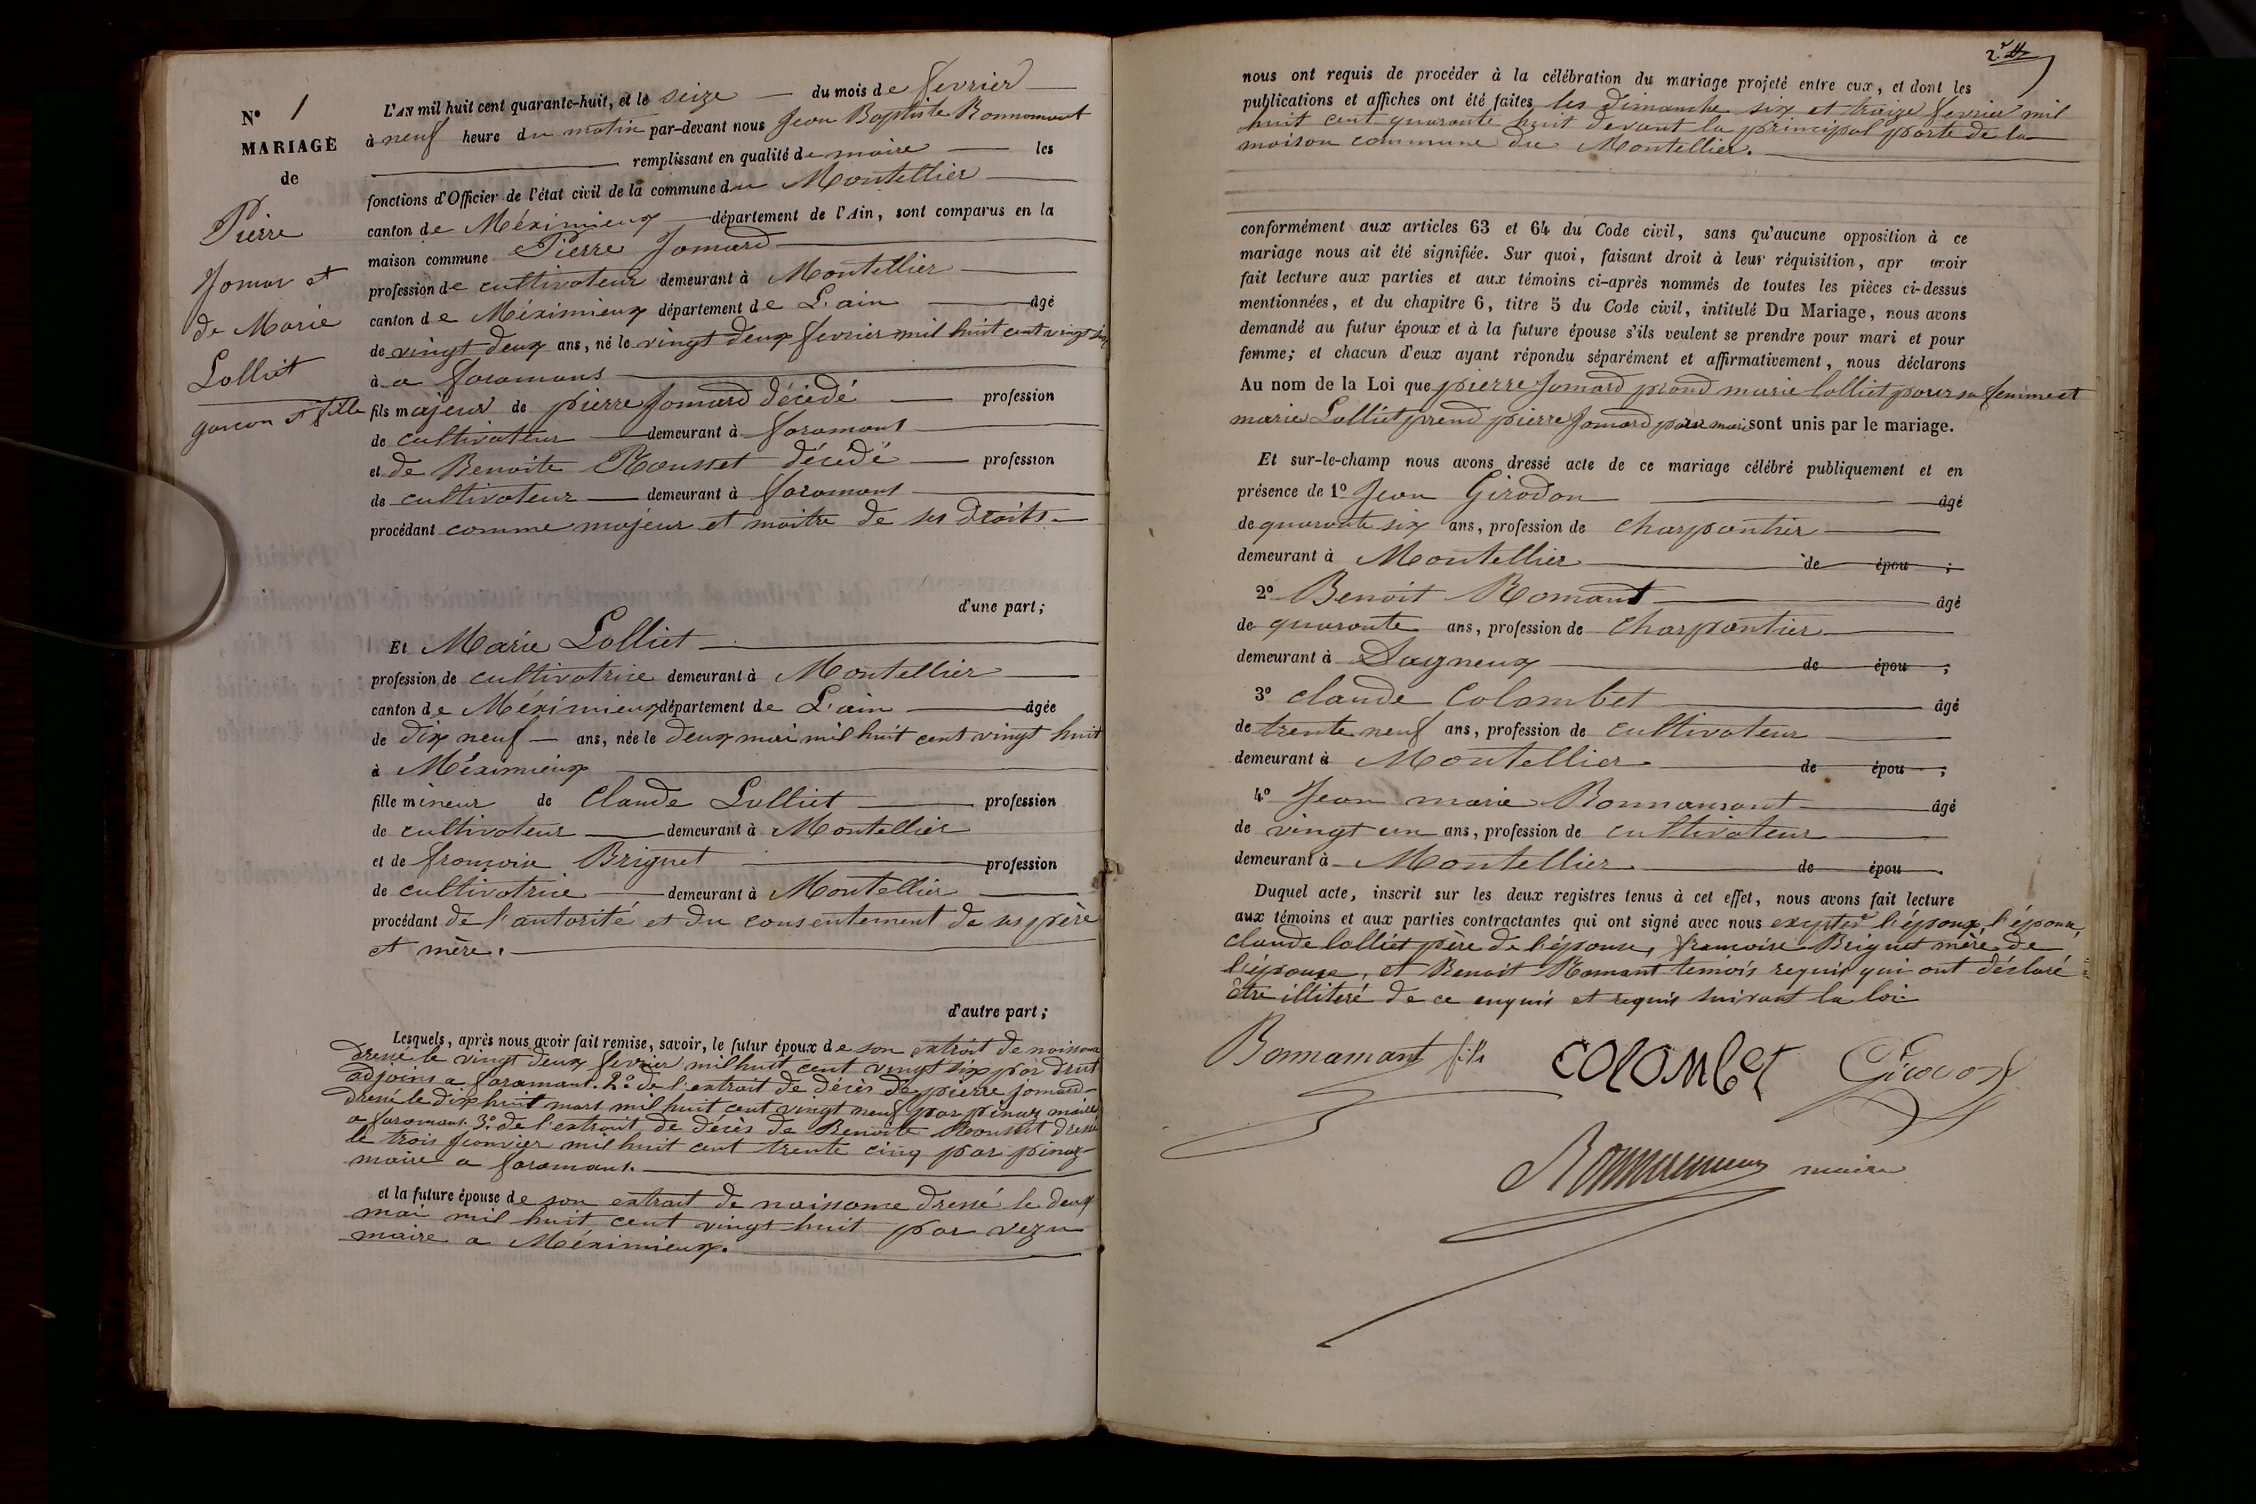 N° 1
MARIAGE
de
Pierre
Jomar et
de Marie
Lolliet
garcon et fille
L'AN mil huit cent quarante-huit, et le seize du mois de fevrier
à neuf heure du matin par-devant nous Jean Baptiste Bonnamant
remplissant en qualité de maire les
fonctions d'Officier de l'état civil de la commune du Montellier
canton de Méximieux département de l'Ain, sont comparus en la
maison commune Pierre Jomard
profession de cultivateur demeurant à Montellier
canton de Méximieux département de L'ain âgé
de vingt deux ans, né le vingt deux fevrier mil huit cent vingt six
à a faramans
fils majeur de pierre Jomard décédé profession
de cultivateur demeurant à faramans
et de Benoite Rousset décédé profession
de cultivateur demeurant à faramans
procédant comme majeur et maitre de ses droits
d'une part;
Et Marie Lolliet
profession de cultivatrice demeurant à Montellier
canton de Méximieux département de L'ain âgée
de dix neuf ans, née le deux mai mil huit cent vingt huit
à Méximieux
fille mineur de Claude Lolliet profession
de cultivateur demeurant à Montellier
et de francoise Briguet profession
de cultivatrice demeurant à Montellier
procédant de l'autorité et du consentement de ses père
et mère.
d'autre part;
Lesquels, après nous avoir fait remise, savoir, le futur époux de son extrait de naissance
dressé le vingt deux fevrier mil huit cent vingt six par
adjoins a faramant. 2° de l'extrait de décès de pierre jomard
dressé le dix huit mars mil huit cent vingt neuf par pinaz maire
a faramans. 3° de l'extrait de décès de Benoite Rousset dressé
le trois Janvier mil huit cent trente cinq par pinaz
maire a faramans.
et la future épouse de son extrait de naissance dressé le deux
mai mil huit cent vingt huit par vezu
maire a Méximieux.
2
nous ont requis de procéder à la célébration du mariage projeté entre eux, et dont les
publications et affiches ont été faites les dimanche six et treize fevrier mil
huit cent quarante huit devant la principal porte de la
maison commune du Montellier.
conformément aux articles 63 et 64 du Code civil, sans qu'aucune opposition à ce
mariage nous ait été signifiée. Sur quoi, faisant droit à leur réquisition, apr avoir
fait lecture aux parties et aux témoins ci-après nommés de toutes les pièces ci-dessus
mentionnées, et du chapitre 6, titre 5 du Code civil, intitulé Du Mariage, nous avons
demandé au futur époux et à la future épouse s'ils veulent se prendre pour mari et pour
femme; et chacun d'eux ayant répondu séparément et affirmativement, nous déclarons
Au nom de la Loi que pierre Jomard prend marie lolliet pour sa femme et
marie Lolliet prend pierre Jomard pour mari sont unis par le mariage.
Et sur-le-champ nous avons dressé acte de ce mariage célébré publiquement et en
présence de 1° Jean Girodon âgé
de quarante six ans, profession de charpantier
demeurant à Montellier de épou ;
2° Benoit Romant âgé
de quarante ans, profession de charpantier
demeurant à Dagneux de épou ;
3° claude Colombet âgé
de trente neuf ans, profession de cultivateur
demeurant à Montellier de épou ;
4° Jean marie Bonnamant âgé
de vingt un ans, profession de cultivateur
demeurant à Montellier de épou .
Duquel acte, inscrit sur les deux registres tenus à cet effet, nous avons fait lecture
aux témoins et aux parties contractantes qui ont signé avec nous excepter l'époux, l'épouse,
claude lolliet père de l'épouse, francoise Briguet mère de
l'épouse, et Benoit Romant temois requis qui ont déclaré
être illiteré de ce enquis et requis suivant la loi
Bonnamant fils COLOMBET Girodon
Bonnamant maire